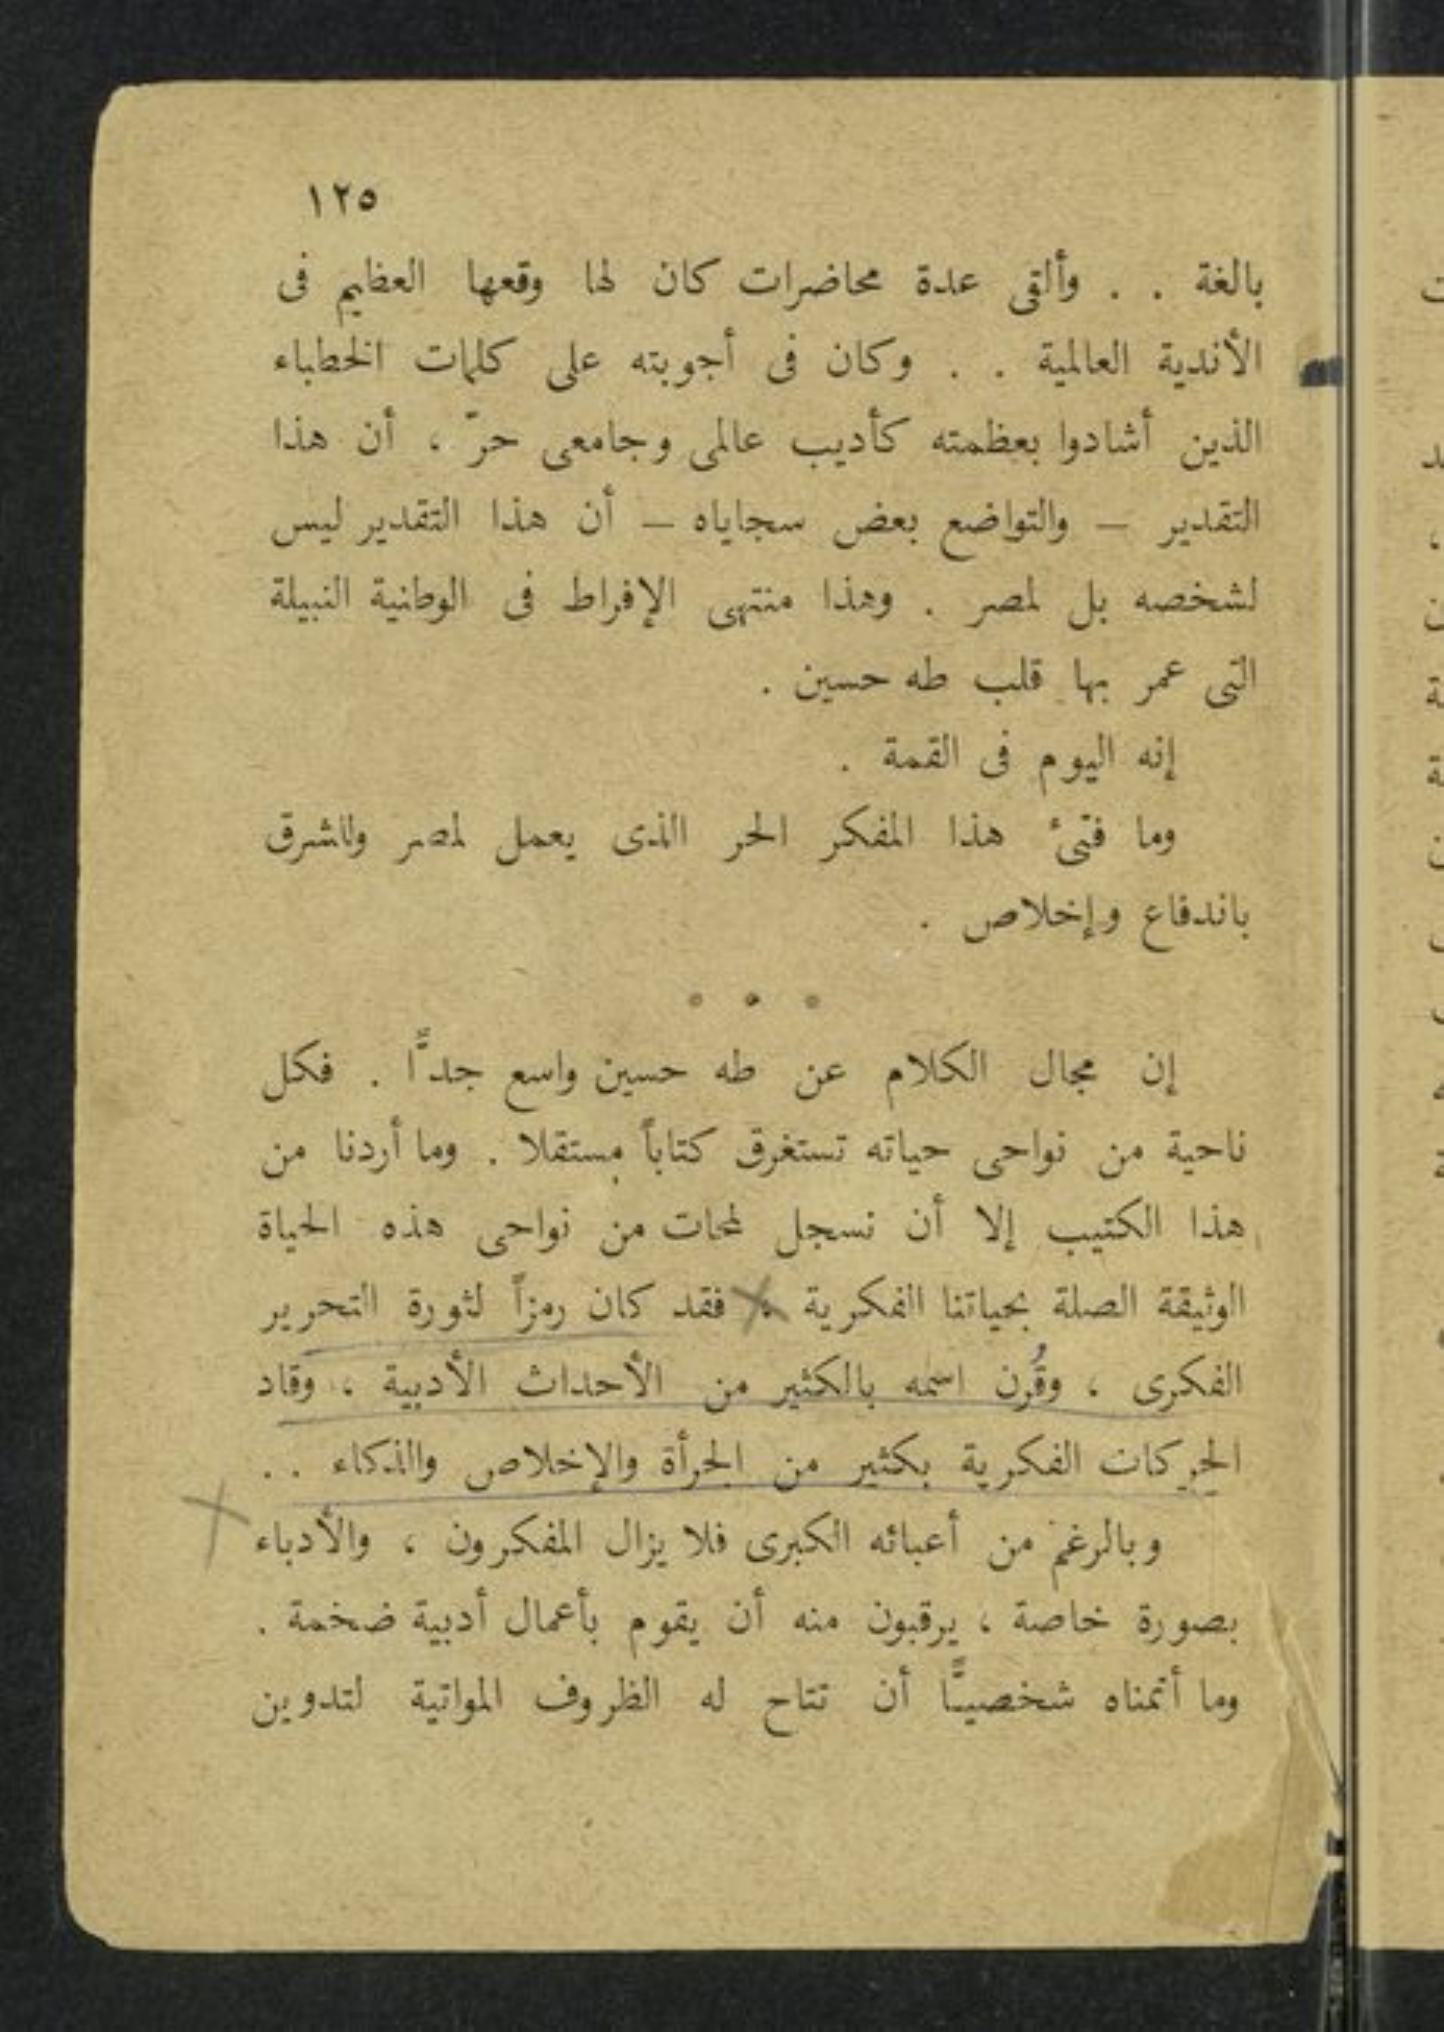 ١٢٥
بالغة . . وألقى عدة محاضرات كان لها وقعها العظيم فى
الأندية العالمية . . وكان فى أجوبته على كلمات الخطباء
الذين أشادوا بعظمته كأديب عالمى وجامعى حرّ ، أن هذا
التقدير – والتواضع بعض سجاياه – أن هذا التقدير ليس
لشخصه بل لمصر . وهذا منتهى الإفراط فى الوطنية النبيلة
التى عمر بها قلب طه حسين .
إنه اليوم فى القمة .
وما فتىء هذا المفكر الحر الذى يعمل لمصر وللشرق
باندفاع وإخلاص .
* * *
إن مجال الكلام عن طه حسين واسع جدًّا . فكل
ناحية من نواحى حياته تستغرق كتاباً مستقلا . وما أردنا من
هذا الكتيب إلا أن نسجل لمحات من نواحى هذه الحياة
الوثيقة الصلة بحياتنا الفكرية ، فقد كان رمزاً لثورة التحرير
الفكرى ، وقُرن اسمه بالكثير من الأحداث الأدبية ، وقاد
الحركات الفكرية بكثير من الجرأة والإخلاص والذكاء . .
وبالرغم من أعبائه الكبرى فلا يزال المفكرون ، والأدباء
بصورة خاصة ، يرقبون منه أن يقوم بأعمال أدبية ضخمة .
وما أتمناه شخصيًّا أن تتاح له الظروف المواتية لتدوين